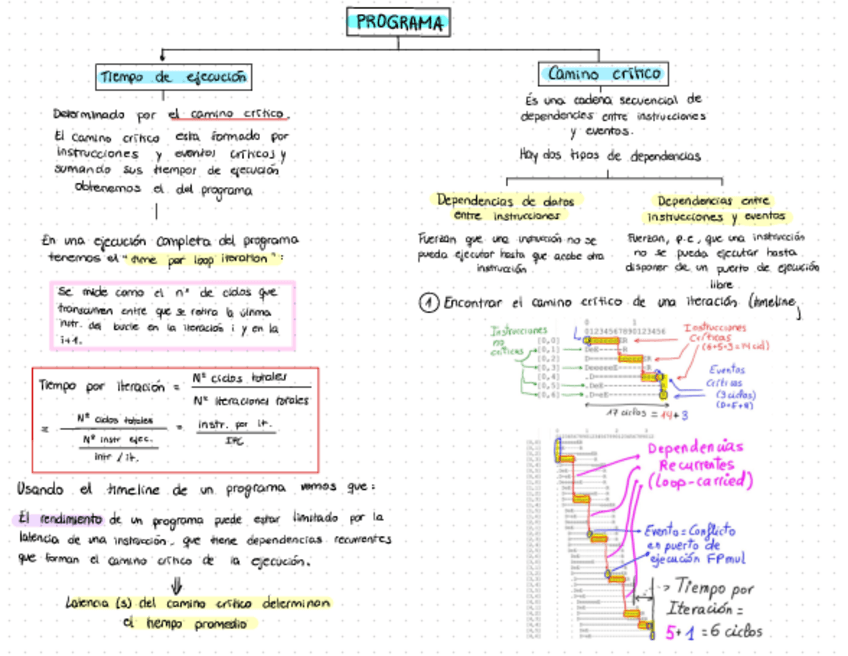 PROGRAMA
Tiempo de ejecución
Determinado por el camino crítico.
El camino crítico esta formado por
instrucciones y eventos críticos y
sumando sus tiempos de ejecución
obtenemos el del programa
En una ejecución completa del programa
tenemos el "time per loop iteration":
Se mide como el nº de ciclos que
transcurren entre que se retira la última
instr. del bucle en la iteración i y en la
i+1.
Tiempo por iteración = Nº ciclos totales / Nº iteraciones totales
= Nº ciclos totales / Nº instr ejec. / intr / it. = instr. por it. / IPC
Usando el timeline de un programa vemos que:
El rendimiento de un programa puede estar limitado por la
latencia de una instrucción, que tiene dependencias recurrentes
que forman el camino crítico de la ejecución.
Latencia (s) del camino crítico determinan
el tiempo promedio
Camino crítico
Es una cadena secuencial de
dependencies entre instrucciones
y eventos.
Hay dos tipos de dependencias
Dependencias de datos
entre instrucciones
Fuerzan que una instrucción no se
pueda ejecutar hasta que acabe otra
instrucción
Dependencias entre
instrucciones y eventos
Fuerzan, p.e., que una instrucción
no se pueda ejecutar hasta
disponer de un puerto de ejecución
libre.
1 Encontrar el camino crítico de una iteración (timeline)
0 1
01234567890123456
Instrucciones
no
críticas
[0,0]
[0,1]
[0,2]
[0,3]
[0,4]
[0,5]
[0,6]
Instrucciones
Críticas
(6+5+3=14 cicl)
Eventos
Críticos
(3 ciclos)
17 ciclos = 14+3
Dependencias
Recurrentes
(loop-carried)
Evento = Conflicto
en puerto de
ejecución FPmul
-> Tiempo por
Iteración =
5+1 = 6 ciclos